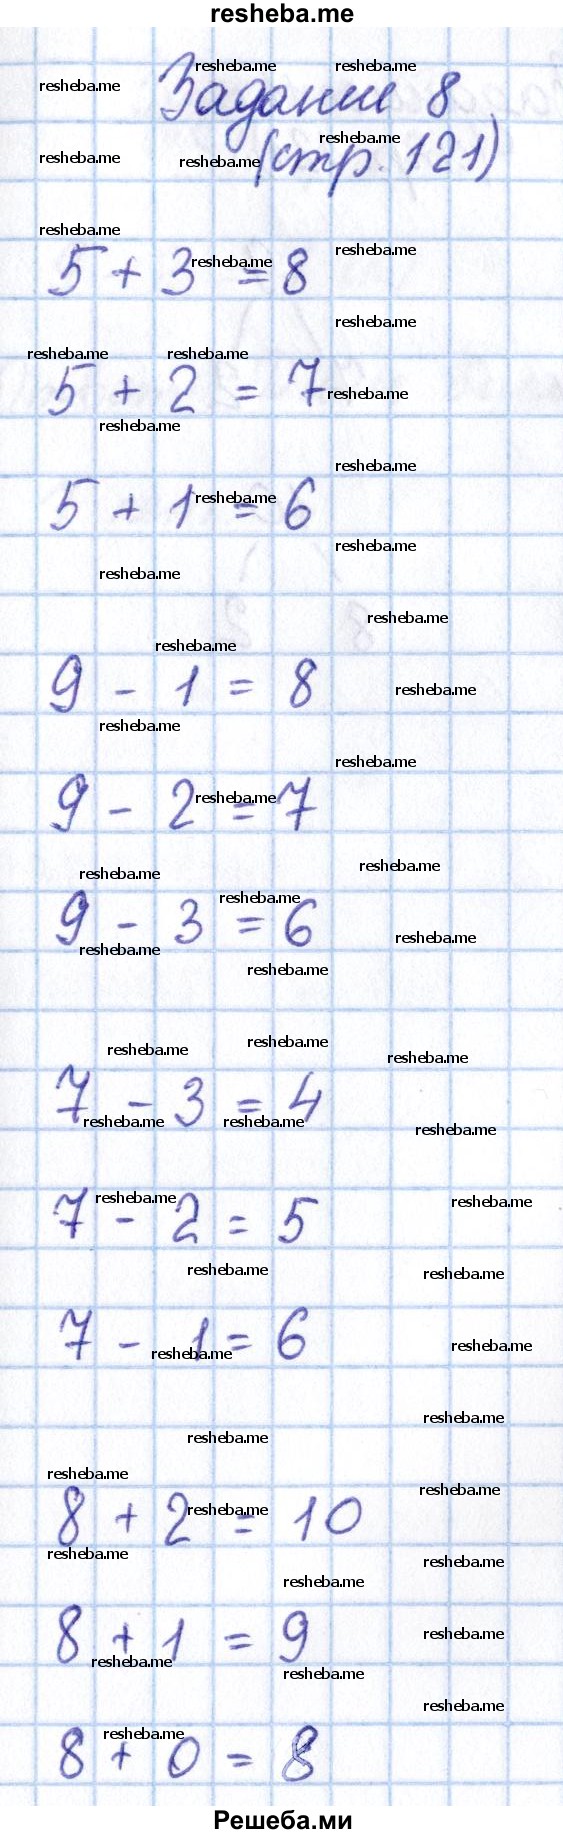 resheba.me
Задание 8
(стр. 121)
5 + 3 = 8
5 + 2 = 7
5 + 1 = 6
9 - 1 = 8
9 - 2 = 7
9 - 3 = 6
7 - 3 = 4
7 - 2 = 5
7 - 1 = 6
8 + 2 = 10
8 + 1 = 9
8 + 0 = 8
Решеба.ми